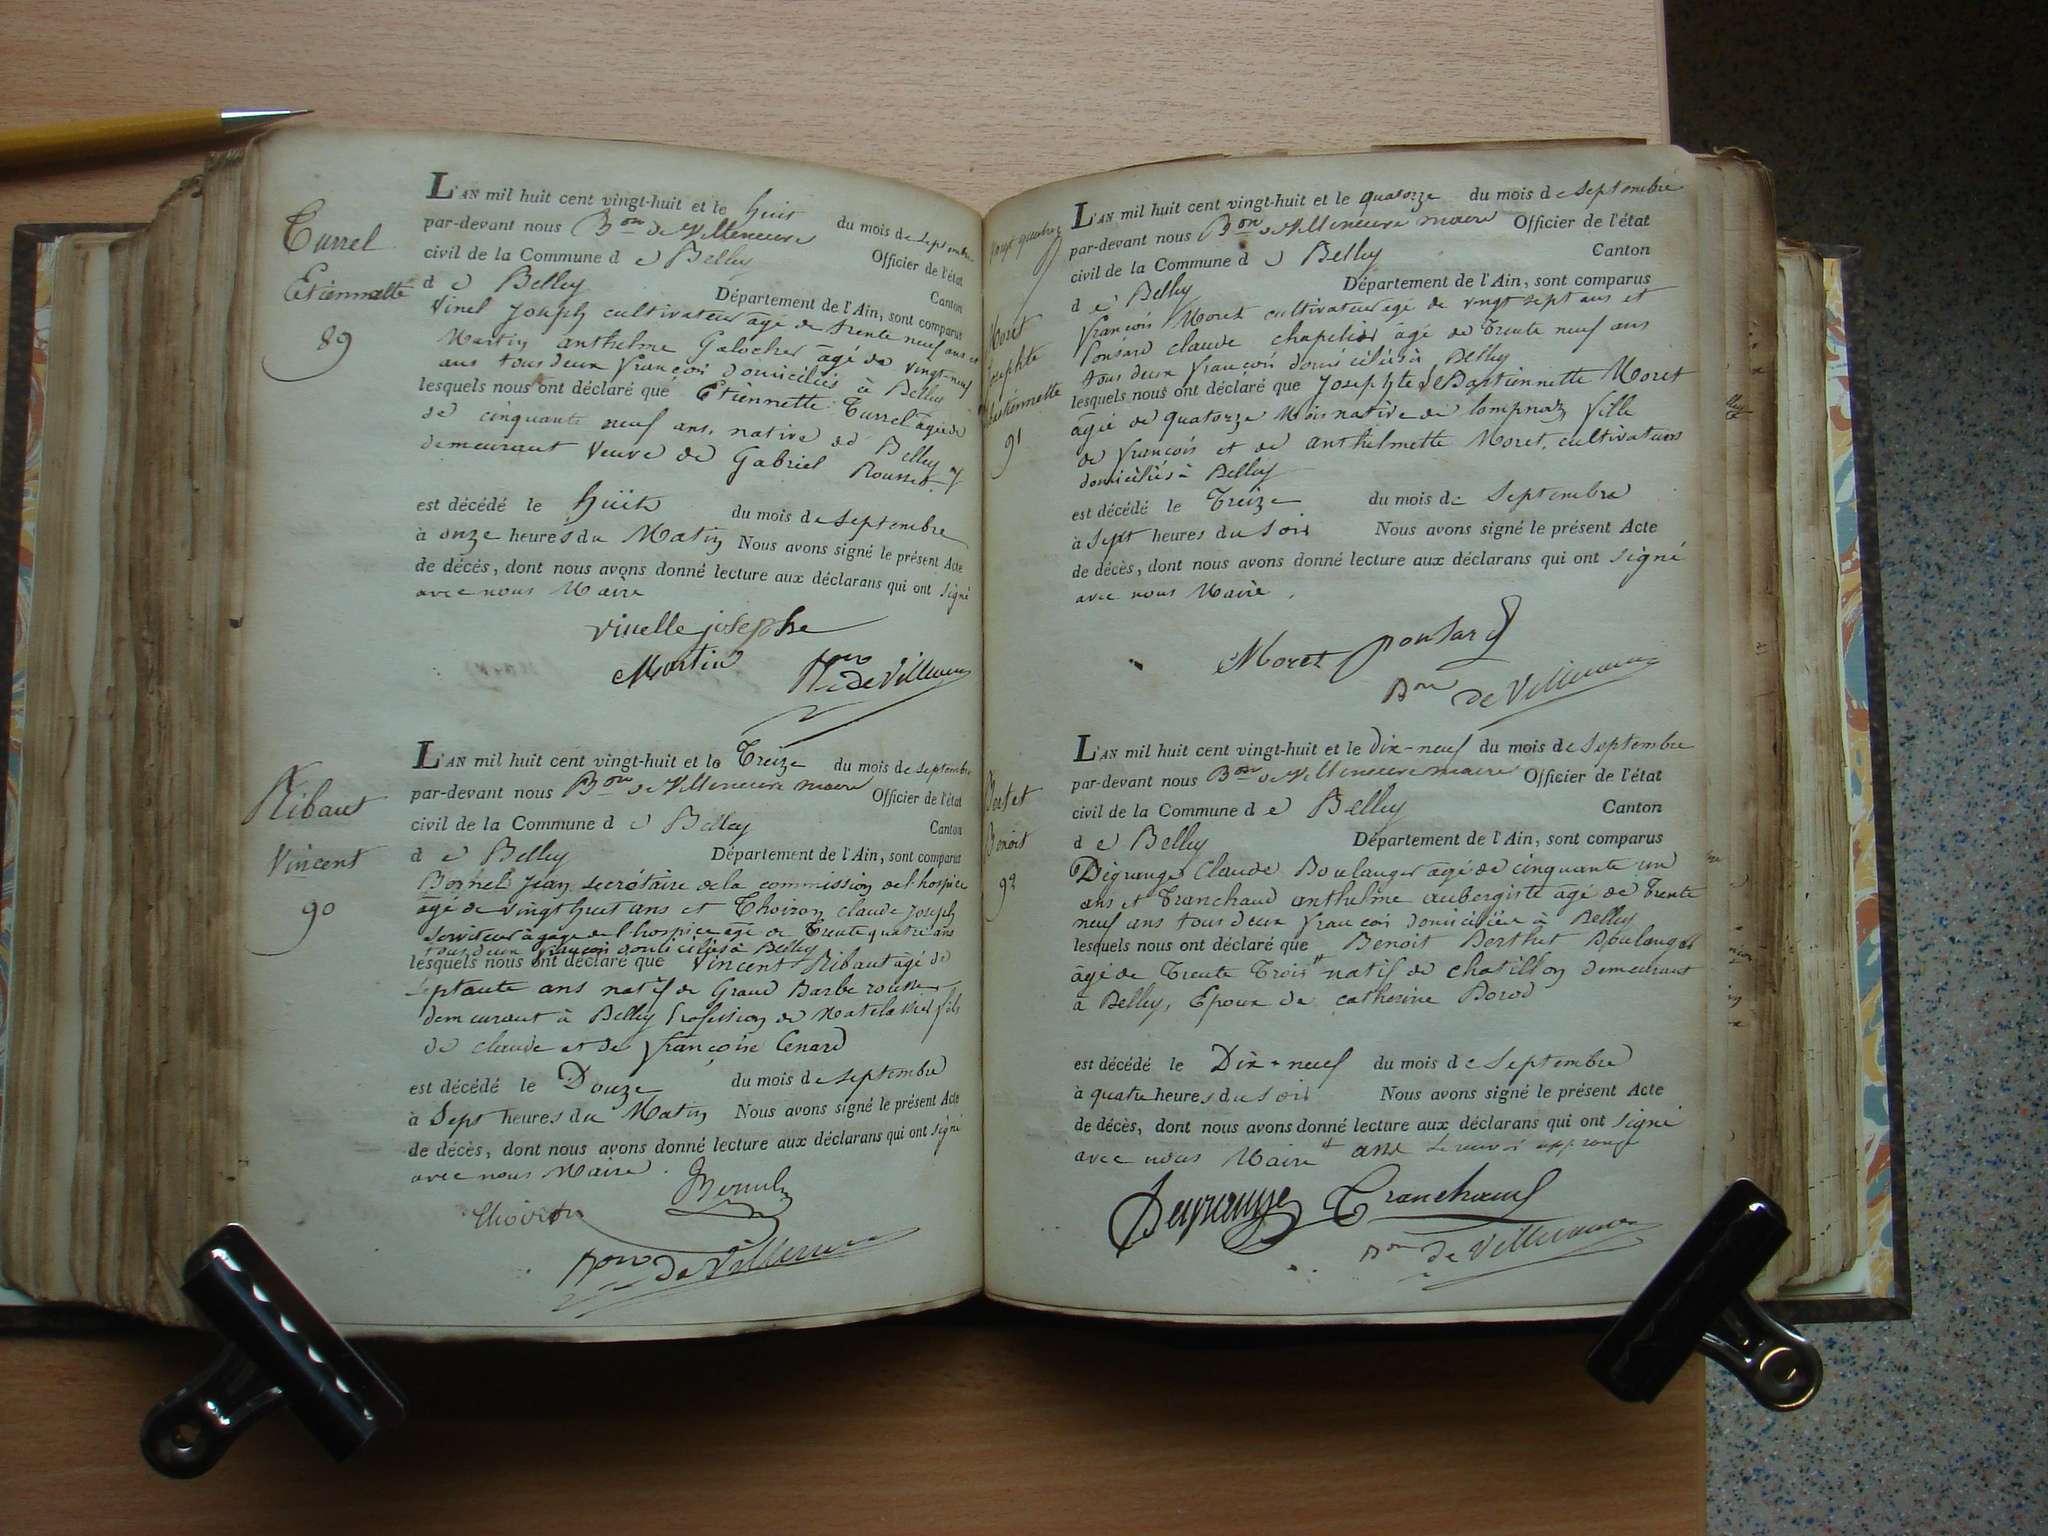 Turrel
Etiennette
89
L'AN mil huit cent vingt-huit et le huit du mois de Septembre
par-devant nous Bon de Villeneuve Officier de l'état
civil de la Commune d e Belley Canton
d e Belley Département de l'Ain, sont comparus
Vinel Joseph cultivateur agé de trente neuf ans et
Martin anthelme Galocher agé de vingt neuf
ans tous deux françois domiciliés à Belley
lesquels nous ont déclaré que Etiennette Turrel agée de
de cinquante neuf ans, native de Belley y
demeurant Veuve de Gabriel Rousset
est décédé le huit du mois de Septembre
à onze heures du Matin Nous avons signé le présent Acte
de décès, dont nous avons donné lecture aux déclarans qui ont signé
avec nous Maire
vinelle josephe
Martin Bon de Villeneuve
Ribaut
Vincent
90
L'AN mil huit cent vingt-huit et le Treize du mois de Septembre
par-devant nous Bon de Villeneuve maire Officier de l'état
civil de la Commune d e Belley Canton
d e Belley Département de l'Ain, sont comparus
Jean secrétaire de la commission de l'hospice
âgé de vingt huit ans et Thoizon claude Joseph
Serviteur à gage de l'hospice agé de Trente quatre ans
tous deux françois domiciliés à Belley
lesquels nous ont déclaré que Vincent Ribaut agé de
septante ans natif de Grand Barbe rousse
demeurant à Belley Profession de Matelassier fils
de claude et de françoise Cenard
est décédé le Douze du mois de Septembre
à Sept heures du Matin Nous avons signé le présent Acte
de décès, dont nous avons donné lecture aux déclarans qui ont signé
avec nous Maire.
Bon de Villeneuve
Moret
Josephte
91
L'AN mil huit cent vingt-huit et le quatorze du mois de Septembre
par-devant nous Bon de Villeneuve maire Officier de l'état
civil de la Commune d e Belley Canton
d e Belley Département de l'Ain, sont comparus
françois Moret cultivateur agé de vingt sept ans et
Ponsard claude chapelier âgé de Trente neuf ans
tous deux françois domiciliés à Belley
lesquels nous ont déclaré que Josephte Moret
âgée de quatorze Mois native de fille
de françois et de anthelmette Moret, cultivateurs
domiciliés à Belley
est décédé le Treize du mois de Septembre
à Sept heures du Soir Nous avons signé le présent Acte
de décès, dont nous avons donné lecture aux déclarans qui ont signé
avec nous Maire.
Moret ponsard
Bon de Villeneuve
Bertet
Benoit
92
L'AN mil huit cent vingt-huit et le dix-neuf du mois de Septembre
par-devant nous Bon de Villeneuve maire Officier de l'état
civil de la Commune d e Belley Canton
d e Belley Département de l'Ain, sont comparus
Dégrange Claude Boulanger agé de cinquante un
ans et Tranchand anthelme aubergiste agé de Trente
neuf ans tous deux françois domiciliés à Belley
lesquels nous ont déclaré que Benoit Berthet Boulanger
âgé de Trente Trois natif de chatillon demeurant
à Belley, Epoux de catherine Borod
est décédé le Dix-neuf du mois de Septembre
à quatre heures du Soir Nous avons signé le présent Acte
de décès, dont nous avons donné lecture aux déclarans qui ont signé
avec nous Maire ans le renvoi approuvé
Degrange Tranchand
Bon de Villeneuve